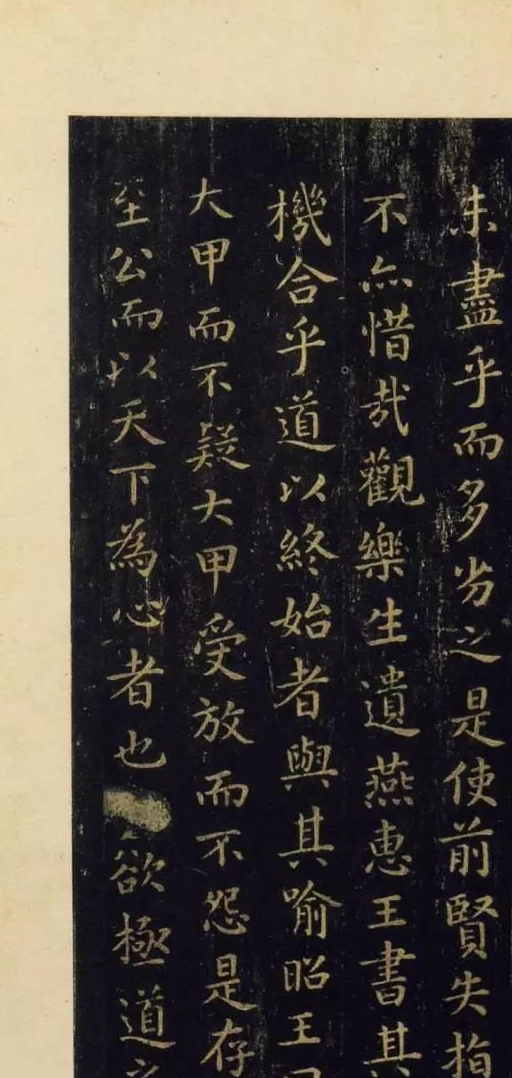 未盡乎而多劣之是使前賢失指
不亦惜哉觀樂生遺燕惠王書其
機合乎道以終始者與其喻昭王
大甲而不疑大甲受放而不怨是存
至公而以天下為心者也欲極道之